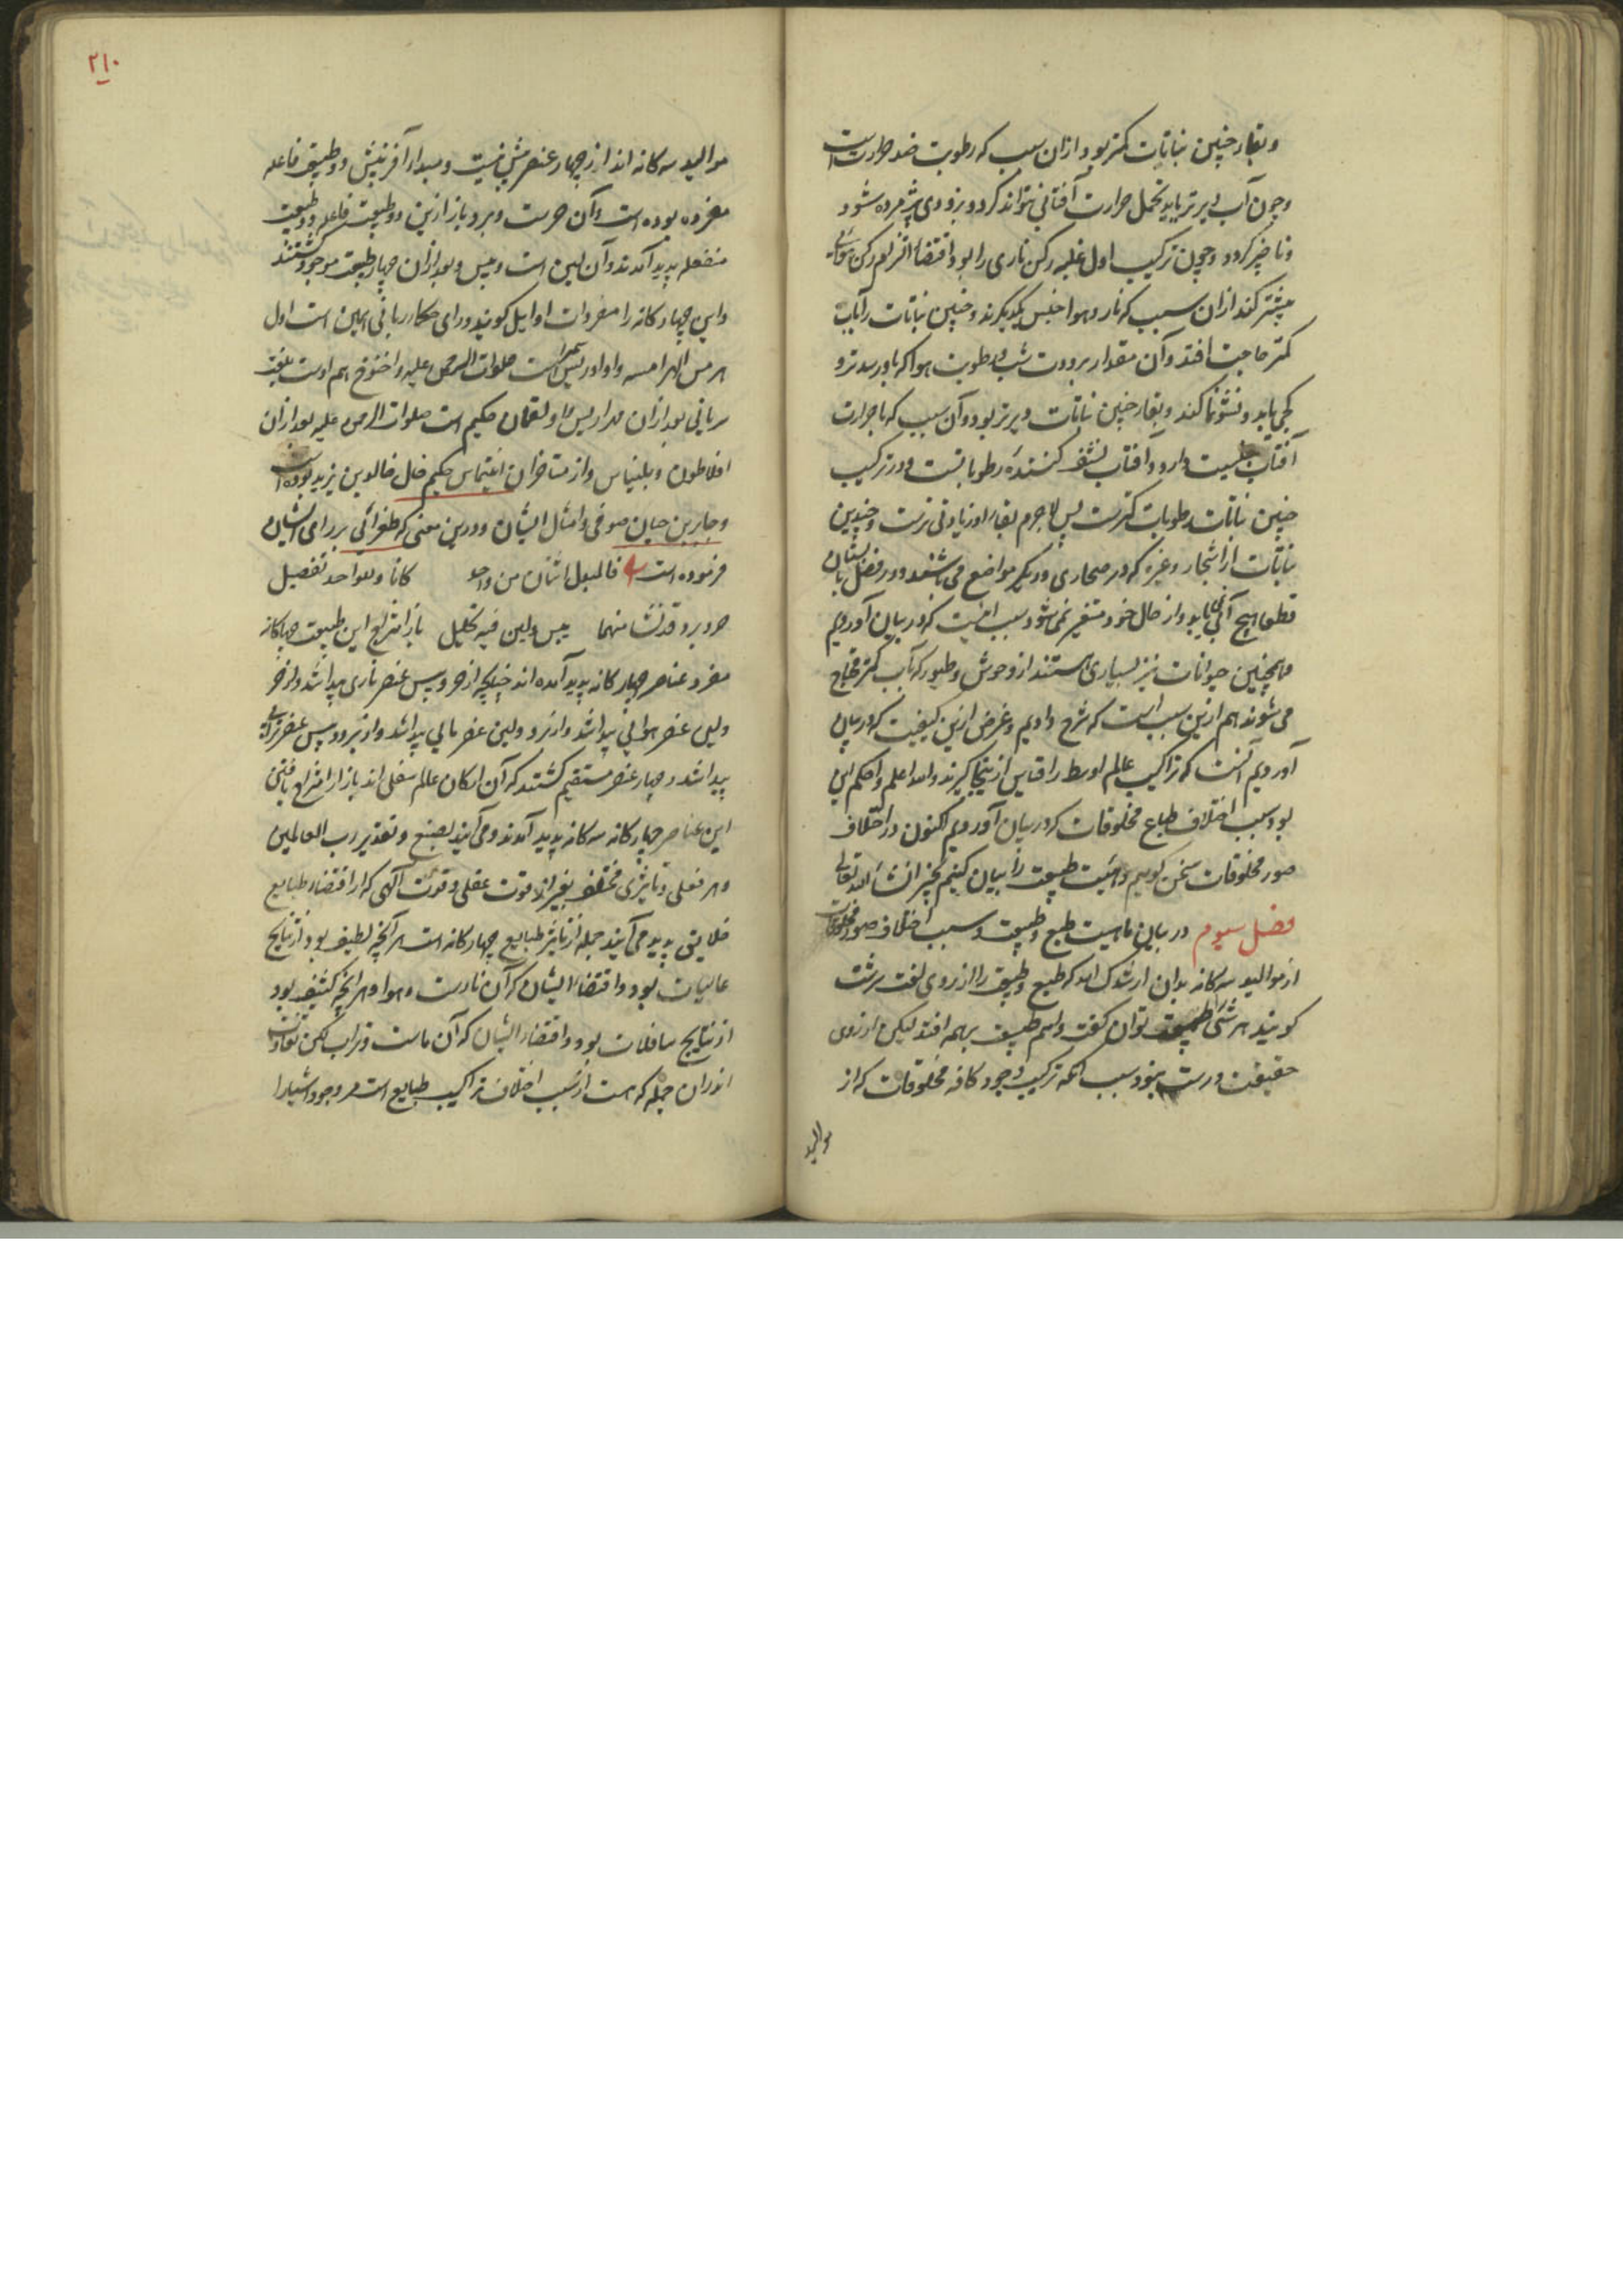 وبقاء چنین نباتات کمتر بود ازان سبب که رطوبت ضد حرارت است
وچون آب دیرتر یابد تحمل حرارت آفتابی نتواند کرد وبزودی پژمرده شود
وناچیز کردد وچون ترکیب اول غلبه رکن ناری را بود اقتضاء رکن هوائی
بیشتر کند ازان سبب که نار وهوا جنس یکدیکرند وچنین نباتات را بآب
کمتر حاجت افتد وآن مقدار برودت شب ورطوبت هوا که باو رسد ترو
یابد ونشو نما کند وبقاء چنین نباتات دیرتر بود وآن سبب که با حرارت
آفتاب جنسیت دارد وآفتاب نشف کنندهٔ رطوباتست ودر ترکیب
چنین نباتات رطوبات کمترست پس لاجرم بقاء او زیادتی ترست وچنین
نباتات از اشجار وغیره که در صحاری ودیکر مواضع می باشند ودر فصل تابستان
قطعا هیچ آبی نیابد واز حال خود متغیر نمی شود سبب اینست که در بیان آوردیم
وهمچنین حیوانات نیز بسیاری هستند از وحوش وطیور که بآب کمتر محتاج
می شوند هم ازین سبب است که شرح دادیم وغرض ازین کیفیت که در بیان
آوردیم آنست که تراکیب عالم اوسط را قیاس ازینجا کیرند والله اعلم واحکم این
بود سبب اختلاف طباع مخلوقات که در بیان آوردیم اکنون در اختلاف
صور مخلوقات سخن کوییم وماهیت طبیعت را بیان کنیم بخیر انشاء الله تعالی
فصل سیوم در بیان ماهیت طبع وطبیعت وسبب اختلاف صور مخلوقات
از موالید سه کانه بدان ارشدک الله که طبع وطبیعت را از روی لغت سرشت
کویند هر شئ را طبیعت توان کفت واسم طبیعت بر همه افتد لیکن از روی
حقیقت درست نبود سبب آنکه ترکیب وجود کافه مخلوقات که از
موالید
۲۱۰
موالید سه کانه اند از چهار عنصر بیش نیست ومبداء آفرینش دو طبیعت فاعله
مفرده بوده است وآن حرست وبرد وباز ازین دو طبیعت فاعله دو طبیعت
منفعله پدید آمدند وآن لین است ویبس وبعد ازان چهار طبیعت موجود کشتند
واین چهار کانه را مفردات اوایل کویند ورای حکماء ربانی همین است اول
هرمس الهرامسه واو ادریس پیغمبر است صلوات الرحمن علیه واخنوخ هم اوست بلغت
سریانی بعد ازان ولقمان حکیم است صلوات الرحمن علیه بعد ازان
افلاطون وبلیناس واز متاخران حکیم خالد بن یزید بوده است
وجابر بن حیان صوفی وامثال ایشان ودرین معنی که طغرائی بر رای ایشان
فرموده است فالبعل اثنان من واحد کانا وللواحد تفصیل
حر وبرد قد نشا منهما یبس ولین فیه تحلیل باز امتزاج این طبیعت چهارکانه
مفرد عناصر چهار کانه پدید آمده اند چنانکچه از حر ویبس عنصر ناری پیدا شد واز حر
ولین عنصر هوائی پیدا شد واز برد ولین عنصر مائی پیدا شد واز برد ویبس عنصر ترابی
پیدا شد وچهار عنصر مستقیم کشتند که آن ارکان عالم سفلی اند باز از امتزاج یافتن
این عناصر چهار کانه سه کانه پدید آمدند ومی آیند بصنع وتقدیر رب العالمین
وهر فعلی وتاثیری مختلف بغیر از قوت عقلی وقوت آلهی که از اقتضاء طبایع
خلایق پدید می آیند جمله از تاثیر طبایع چهار کانه است هر آنچه لطیف بود از نتایج
عالیات بود واقتضاء ایشان که آن نارست وهوا وهر آنچه کثیف بود
از نتایج سافلات بود واقتضاء ایشان که آن ماست وتراب لکن تفاوت
اندران جمله که هست از سبب اختلاف تراکیب طبایع است مر وجود اشیا را